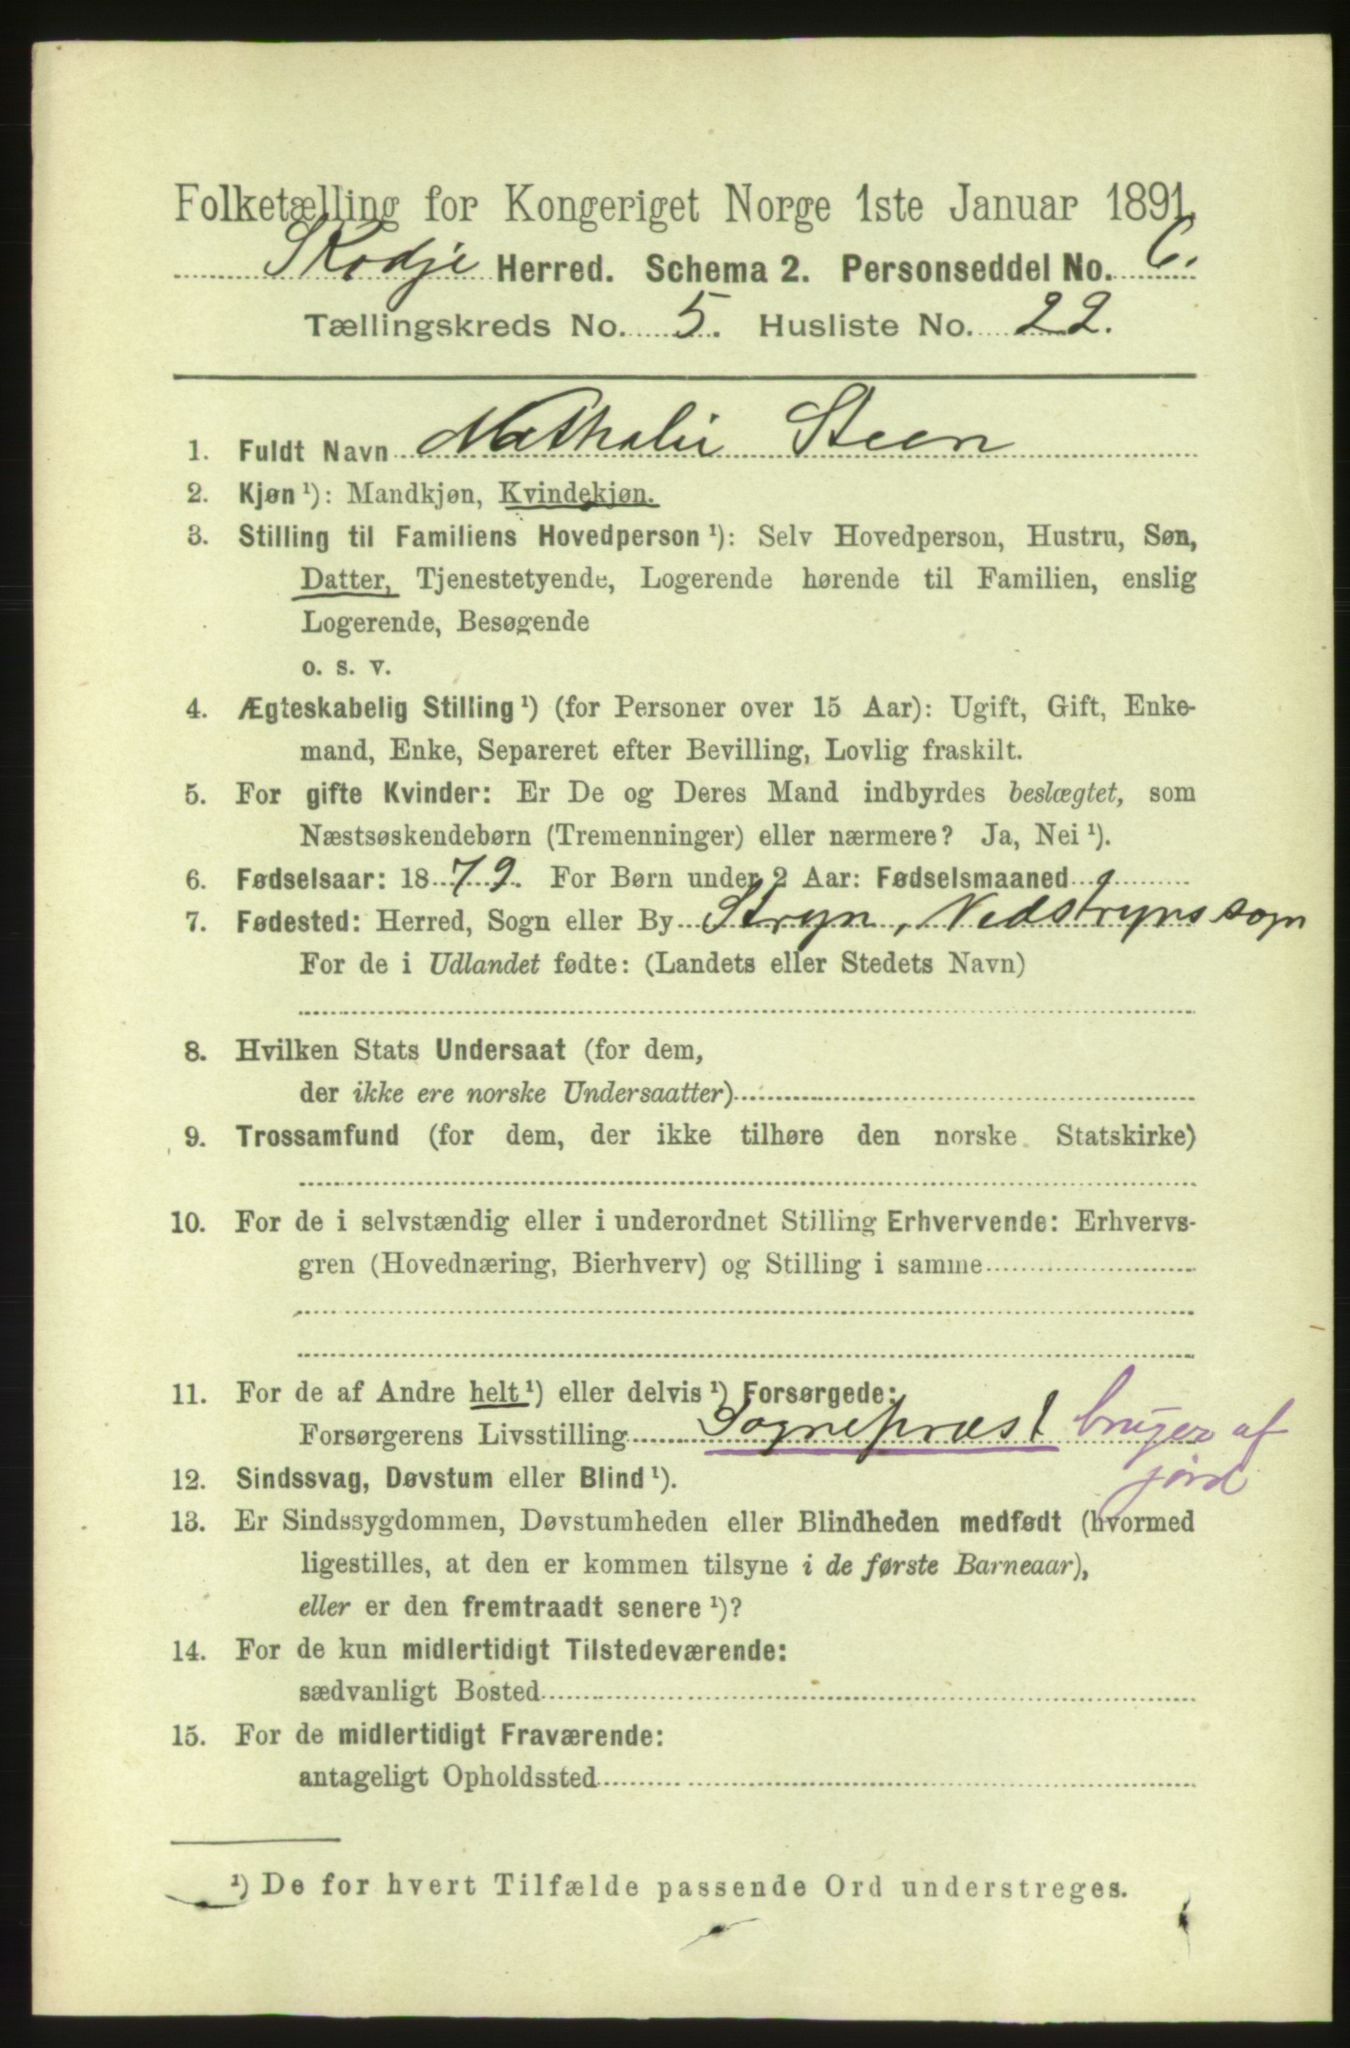 Folketælling for Kongeriget Norge 1ste Januar 1891.
Skodje Herred. Schema 2. Personseddel No. 6.
Tællingskreds No. 5. Husliste No. 22.
1. Fuldt Navn Nathalie Steen
2. Kjøn ¹): Mandkjøn, Kvindekjøn.
3. Stilling til Familiens Hovedperson ¹): Selv Hovedperson, Hustru, Søn,
Datter, Tjenestetyende, Logerende hørende til Familien, enslig
Logerende, Besøgende
o. s. v.
4. Ægteskabelig Stilling ¹) (for Personer over 15 Aar): Ugift, Gift, Enke-
mand, Enke, Separeret efter Bevilling, Lovlig fraskilt.
5. For gifte Kvinder: Er De og Deres Mand indbyrdes beslægtet, som
Næstsøskendebørn (Tremenninger) eller nærmere? Ja, Nei ¹).
6. Fødselsaar: 1879. For Børn under 2 Aar: Fødselsmaaned
7. Fødested: Herred, Sogn eller By Stryn, Nedstryns sogn
For de i Udlandet fødte: (Landets eller Stedets Navn)
8. Hvilken Stats Undersaat (for dem,
der ikke ere norske Undersaatter)
9. Trossamfund (for dem, der ikke tilhøre den norske Statskirke)
10. For de i selvstændig eller i underordnet Stilling Erhvervende: Erhvervs-
gren (Hovednæring, Bierhverv) og Stilling i samme
11. For de af Andre helt ¹) eller delvis ¹) Forsørgede:
Forsørgerens Livsstilling Sognepræst bruger af
jord
12. Sindssvag, Døvstum eller Blind ¹).
13. Er Sindssygdommen, Døvstumheden eller Blindheden medfødt (hvormed
ligestilles, at den er kommen tilsyne i de første Barneaar),
eller er den fremtraadt senere ¹)?
14. For de kun midlertidigt Tilstedeværende:
sædvanligt Bosted
15. For de midlertidigt Fraværende:
antageligt Opholdssted
¹) De for hvert Tilfælde passende Ord understreges.